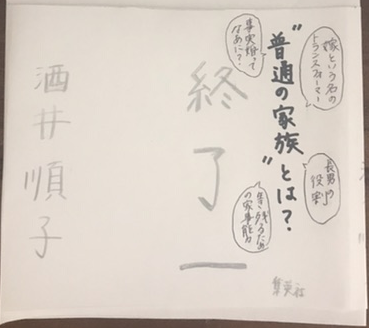 嫁という名の
トランスフォーマー
長男の
役割
“普通の家族”とは?
事実婚って
なあに?
生き残るため
の家事能力
終了
酒井順子
集英社